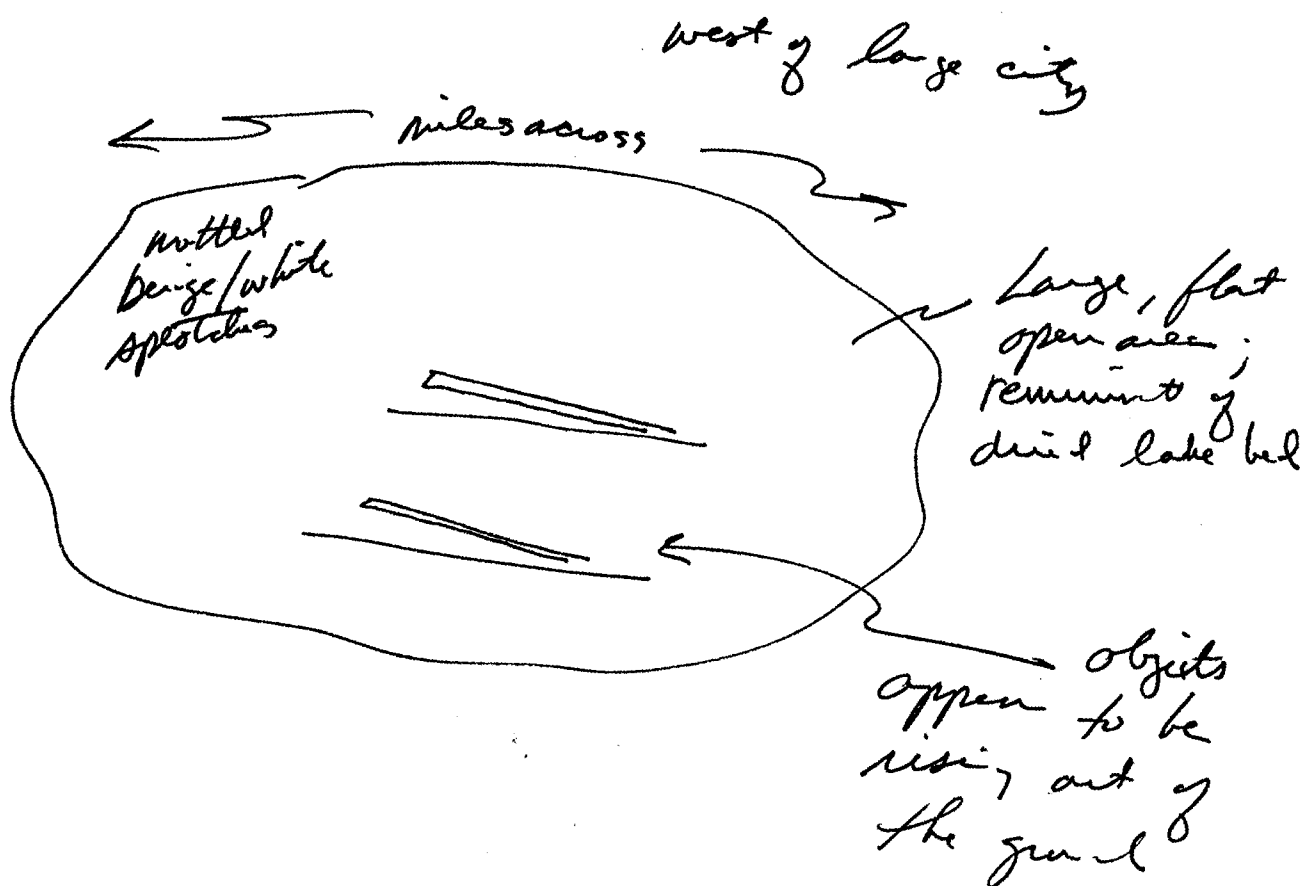 west of large city
miles across
mottled
beige/white
splotches
Large, flat
open area;
reminiscent of
dried lake bed
objects
appear to be
rising out of
the ground